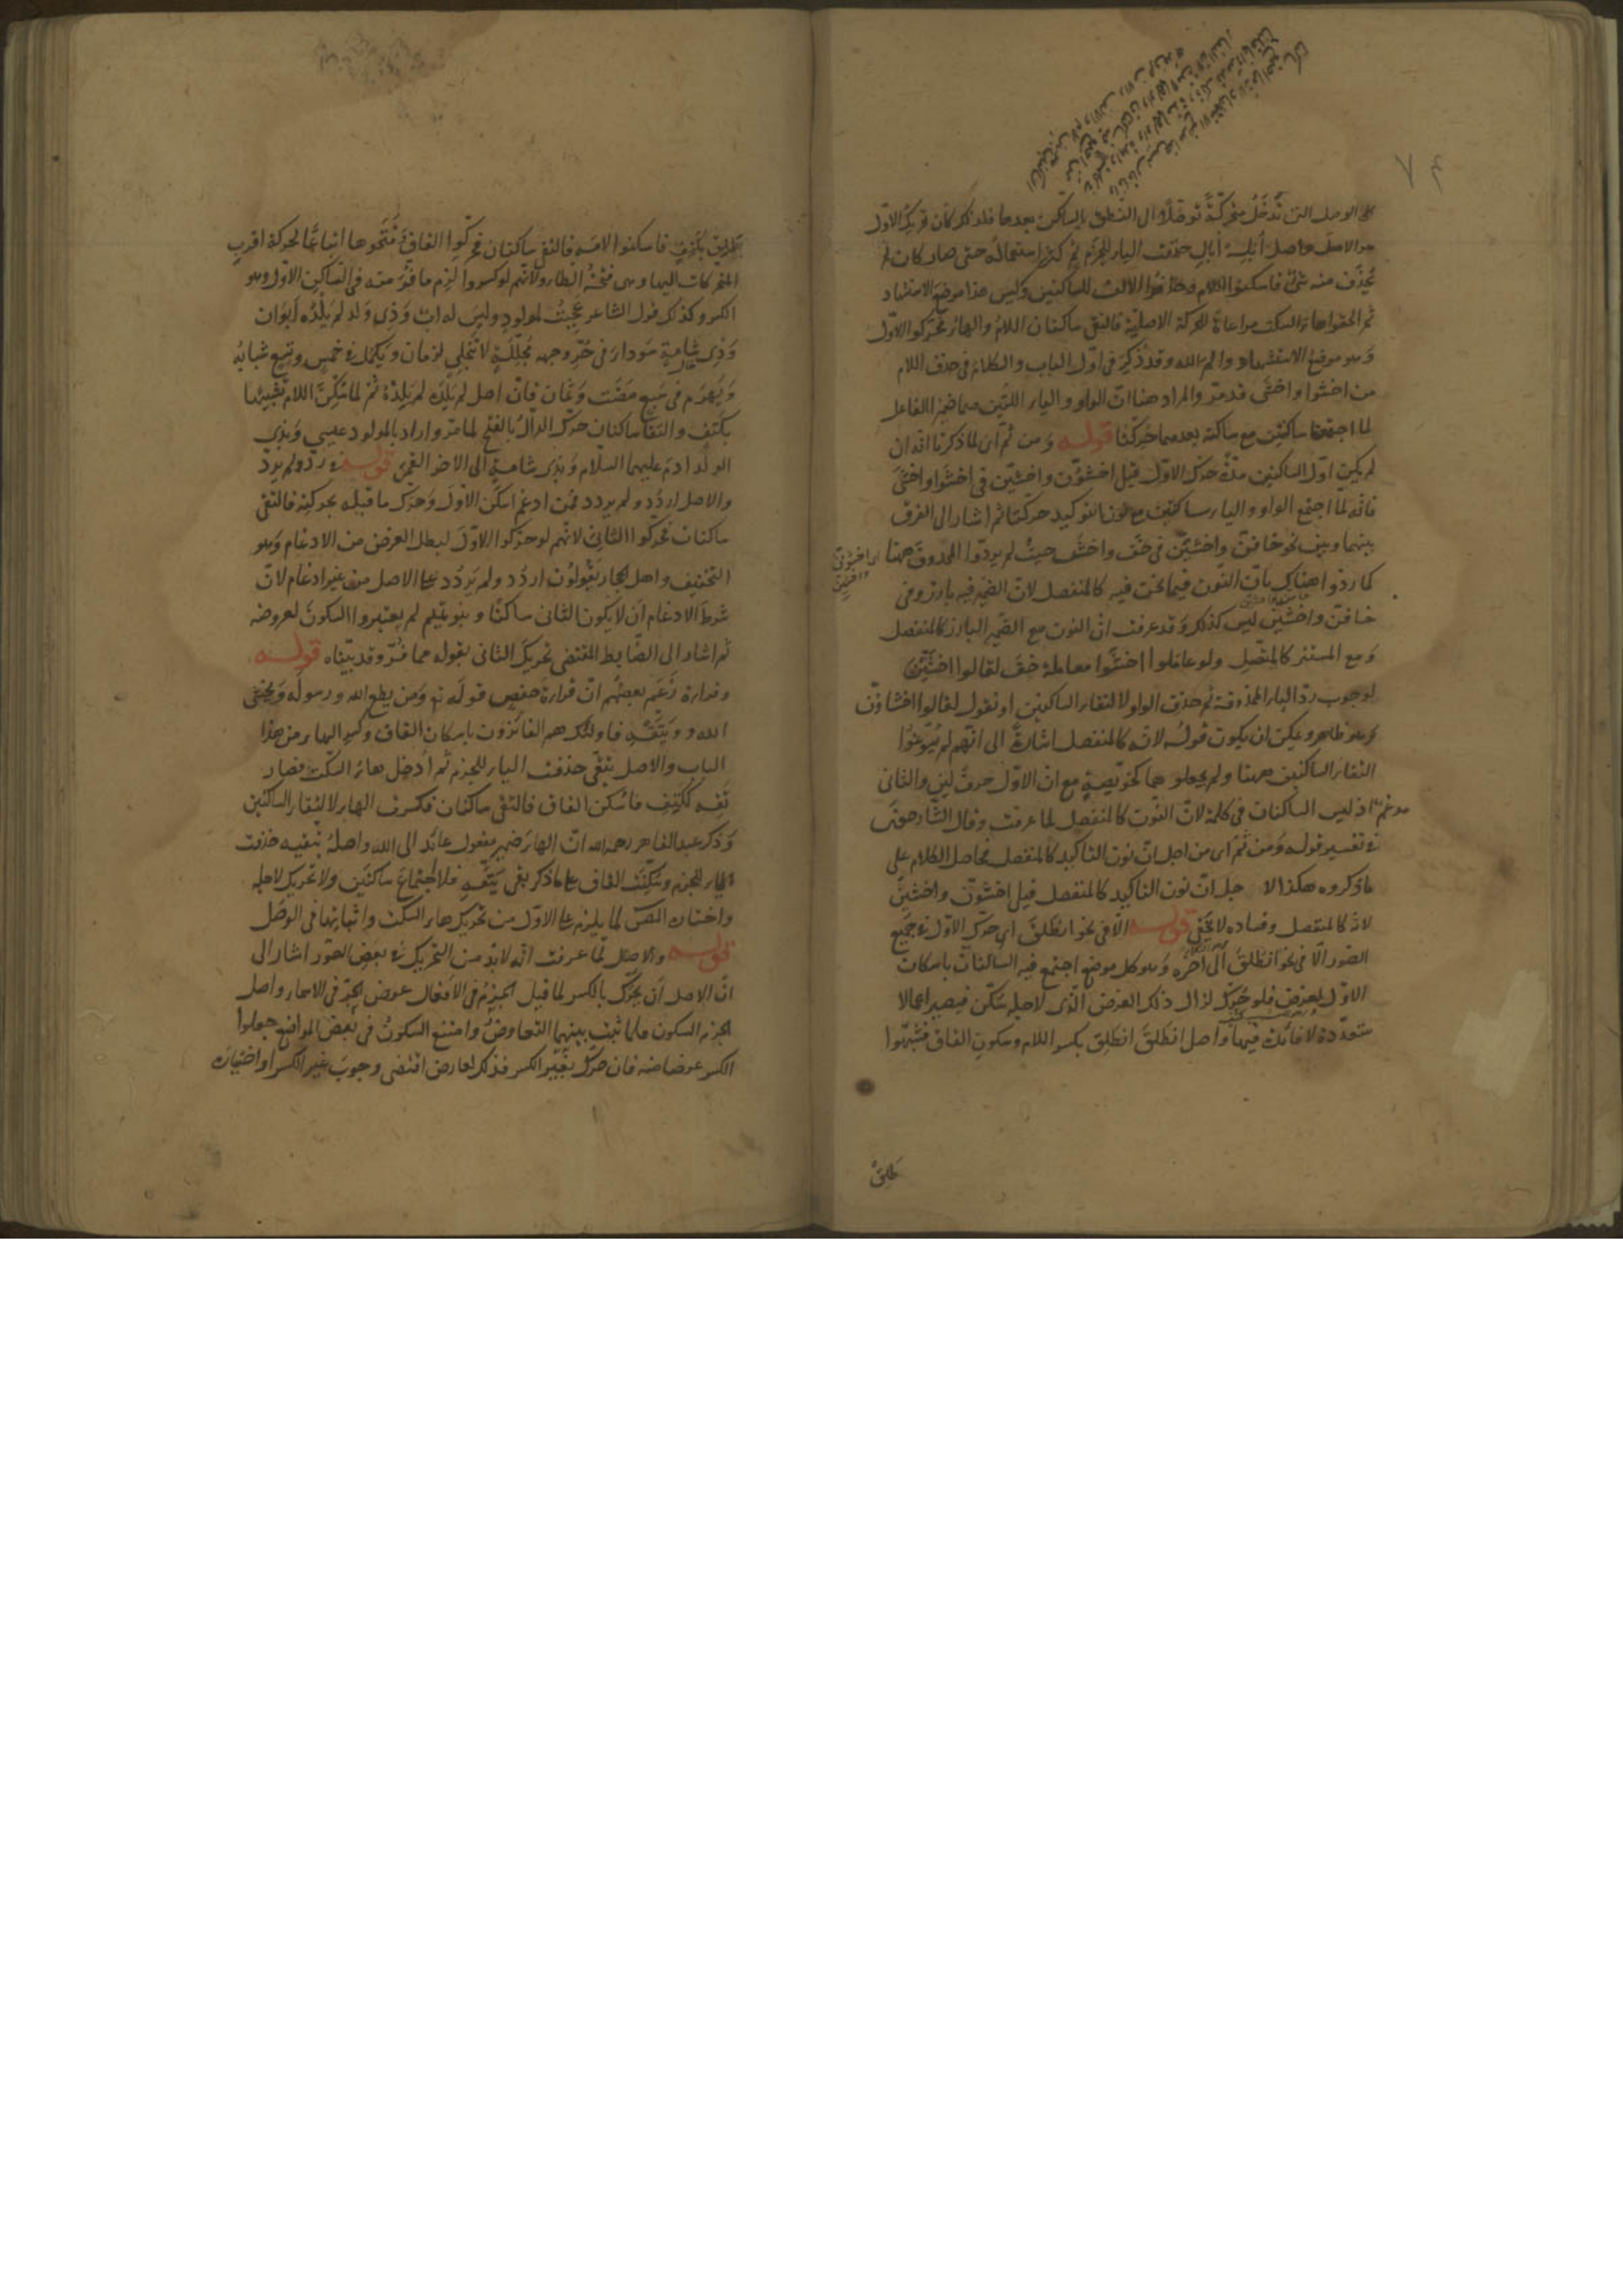 الوصل التى تدخل متحركة توصلا الى النطق بالساكن بعدها فلذلك كان تحريك الاول
هو الاصل واصل ابله ابالى حذفت الياء للجزم ثم كثر استعماله حتى صار كان لم
يحذف منه شئ فاسكنوا اللام وحذفوا الالف للساكنين وليس هذا موضع الاستشهاد
ثم الحقوا هاء السكت مراعاة للحركة الاصلية فالتقى ساكنان اللام والهاء فحركوا الاول
وهو موضع الاستشهاد والم الله وقد ذكر فى اول الباب والكلام فى حذف اللام
من اخشوا واخشى قد مر والمراد هنا ان الواو والياء اللتين هما ضمير الفاعل
لما اجتمعتا ساكنتين مع ساكنة بعدهما حركتا قوله ومن ثم اى لما ذكرنا انه ان
لم يكن اول الساكنين مدة حرك الاول قيل اخشون واخشين فى اخشوا واخشى
فانه لما اجتمع الواو والياء ساكنتين مع نون التوكيد حركتا ثم اشار الى الفرق
بينهما وبين نحو خافن واخشين فى خف واخش حيث لم يردوا المحذوف ههنا
كما ردوا هناك بان النون فيما نحن فيه كالمنفصل لان الضمير فيه بارز وفى
خافن واخشين ليس كذلك وقد عرفت ان النون مع الضمير البارز كالمنفصل
ومع المستتر كالمتصل ولو عاملوا اخشوا معاملة خف لقالوا اخشين
لوجوب رد الياء المحذوفة ثم حذف الواو لالتقاء الساكنين او نقول لقالوا اخشاون
وهو ظاهر ويمكن ان يكون قوله لانه كالمنفصل اشارة الى انهم لم يسوغوا
التقاء الساكنين ههنا ولم يجعلوهما كخويصة مع ان الاول حرف لين والثانى
مدغم اذ ليس الساكنان فى كلمة لان النون كالمنفصل لما عرفت وقال الشارحون
فى تفسير قوله ومن ثم اى من اجل ان نون التاكيد كالمنفصل فحاصل الكلام على
ما ذكروه هكذا لاجل ان نون التاكيد كالمنفصل قيل اخشون واخشين
لانه كالمنفصل وفساده لا يخفى قوله الا فى نحو انطلق اى حرك الاول فى جميع
الصور الا فى نحو انطلق الى آخره وهو كل موضع اجتمع فيه الساكنان باسكان
الاول لغرض فلو حرك لزال ذلك الغرض الذى لاجله سكن فيصير اعمالا
متعددة لا فائدة فيها واصل انطلق انطلق بكسر اللام وسكون القاف فشبهوا
طلق
طلق بكتف فاسكنوا لامه فالتقى ساكنان فحركوا القاف وفتحوها اتباعا لحركة اقرب
المتحركات اليها وهى فتحة الطاء ولانهم لو كسروا لزم ما فر منه فى الساكن الاول وهو
الكسر وكذلك قول الشاعر عجبت لمولود وليس له اب وذى ولد لم يلده ابوان
وذى شامة سوداء فى حر وجهه مجللة لا تنجلى لزمان ويكمل فى خمس وتسع شبابه
ويهرم فى سبع مضت وثمان فان اصل لم يلده لم يلده ثم لما سكن اللام تشبيها
بكتف والتقا ساكنان حرك الدال بالفتح لما مر واراد بالمولود عيسى وبذى
الولد ادم عليهما السلام وبذى شامة الى الاخر القمر قوله فى رد ولم يرد
والاصل اردد ولم يردد فمن ادغم اسكن الاول وحرك ما قبله بحركته فالتقى
ساكنان فحركوا الثانى لانهم لو حركوا الاول لبطل الغرض من الادغام وهو
التخفيف واهل الحجاز يقولون اردد ولم يردد على الاصل من غير ادغام لان
شرط الادغام ان لا يكون الثانى ساكنا وبنو تميم لم يعتبروا السكون لعروضه
ثم اشار الى الضابط المقتضى تحريك الثانى بقوله مما فر وقد بيناه قوله
وقراءة زعم بعضهم ان قراءة حفص قوله تع ومن يطع الله ورسوله ويخشى
الله ويتقه فاولئك هم الفائزون باسكان القاف وكسر الهاء من هذا
الباب والاصل يتقى حذفت الياء للجزم ثم ادخل هاء السكت فصار
تقه ككتف فاسكن القاف فالتقى ساكنان فكسرت الهاء لالتقاء الساكنين
وذكر عبد القاهر رحمه الله ان الهاء ضمير مفعول عائد الى الله واصله يتقيه حذفت
الياء للجزم وسكنت القاف على ما ذكر بقى يتقه فلا اجتماع ساكنين ولا تحريك لاجله
واختاره المص لما يلزم على الاول من تحريك هاء السكت واثباتها فى الوصل
قوله والاصل لما عرفت انه لا بد من التحريك فى بعض الصور اشار الى
ان الاصل ان يحرك بالكسر لما قيل الجزم فى الافعال عوض الجر فى الاسماء واصل
الجزم السكون فلما ثبت بينهما التعاوض وامتنع السكون فى بعض المواضع جعلوا
الكسر عوضا منه فان حرك بغير الكسر فذلك لعارض اقتضى وجوب غير الكسر او اختياره